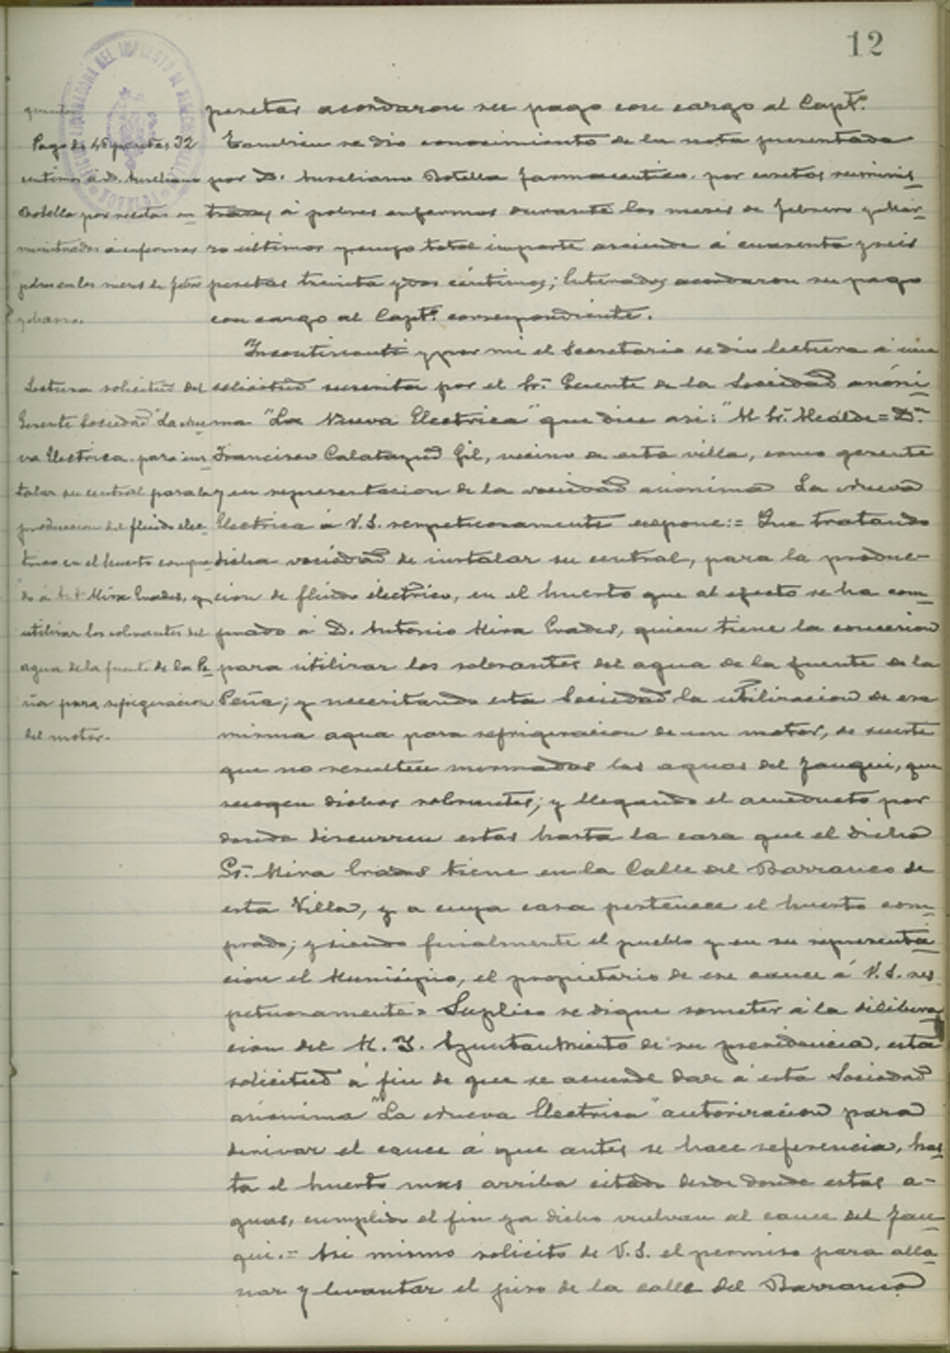 12
pesetas acordaron su pago con cargo al Capt.º
Tambien se dio conocimiento de la nota presentada
por D. Aureliano Botella farmaceutico por recetas suminis
tradas á pobres enfermos durante los meses de febrero y Mar
zo ultimos y cuyo total importe asciende á cuarenta y seis
pesetas treinta y dos céntimos; Enterados acordaron su pago
con cargo al Capt.º correspondiente.
Incontinenti y por mi el Secretario se dio lectura á una
solicitud suscrita por el Sr. Gerente de la Sociedad anóni
ma "La Nueva Electrica" que dice asi: "M Sr. Alcalde = Dn.
Francisco Calatayud Gil, vecino de esta villa, como gerente
y en representacion de la sociedad anonima La Nueva
Electrica á V.S. respetuosamente expone: = Que tratando
dicha sociedad de instalar su central, para la produc-
cion de flúido électrico, en el huerto que al efecto se ha com
prado á D. Antonio Mira Prades, quien tiene la concesion
para utilizar los sobrantes del agua de la fuente de la
Peña; y necesitando esta Sociedad la utilizacion de esa
misma agua para refrigeracion de un motor, de suerte
que no resulten mermadas las aguas del Jauqui, que
recogen dichos sobrantes; y llegando el acueducto por
donde discurren estas hasta la casa que el dicho
Sr. Mira Prades tiene en la Calle del Barranco de
esta Villa, y a cuya casa pertenece el huerto com
prado; y siendo finalmente el pueblo y en su representa
cion el Municipio, el propietario de ese cauce á V.S. res
petuosamente = Suplico se digne someter á la delibera
cion del M. I. Ayuntamiento de su presidencia, esta
solicitud á fin de que se acuerde dar á esta Sociedad
anonima "La Nueva Electrica" autorizacion para
derivar el cauce á que antes se hace referencia, has
ta el huerto mas arriba citado desde donde estas a-
guas, cumplido el fin ya dicho vuelvan al cauce del Jau
qui. = Asi mismo solicito de V.S. el permiso para alla
nar y levantar el piso de la calle del Barranco
Pago de 46 pesetas 32
centimos á D. Aureliano
Botella por recetas su
ministradas á enfermos
pobres en los meses de febro
y Marzo.
Lectura solicitud del
Gerente Sociedad "La Nue
va Electrica" para ins
talar su central para la
produccion del fluido elec-
trico en el huerto compra
do á D. A. Mira Prades, y
utilizar los sobrantes del
agua de la fuente de la Pe
ña para refrigeracion
del motor.